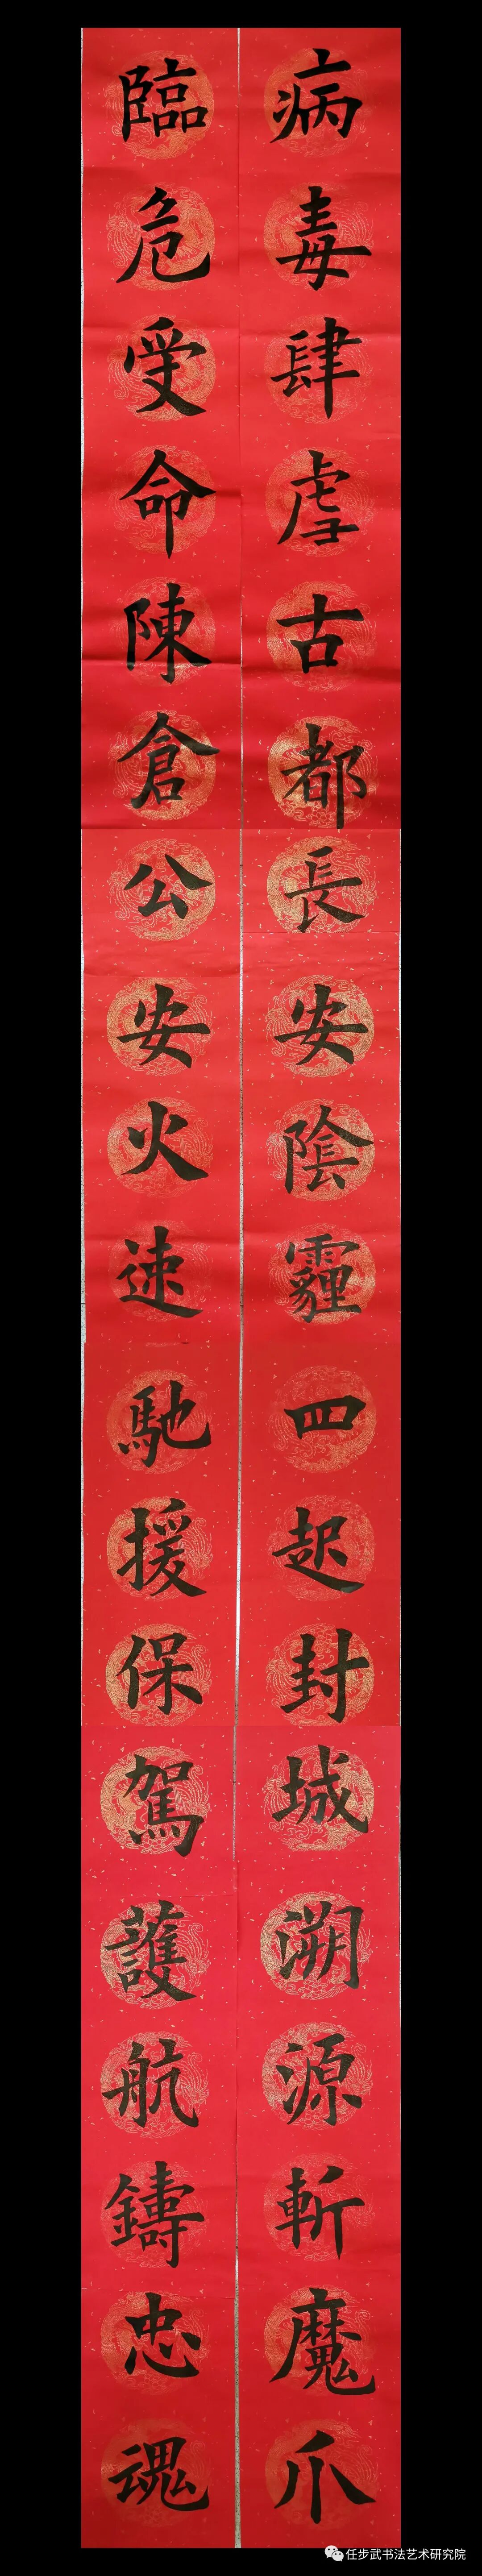 病毒肆虐古都長安陰霾四起封城溯源斬魔爪
臨危受命陳倉公安火速馳援保駕護航鑄忠魂
任步武书法艺术研究院